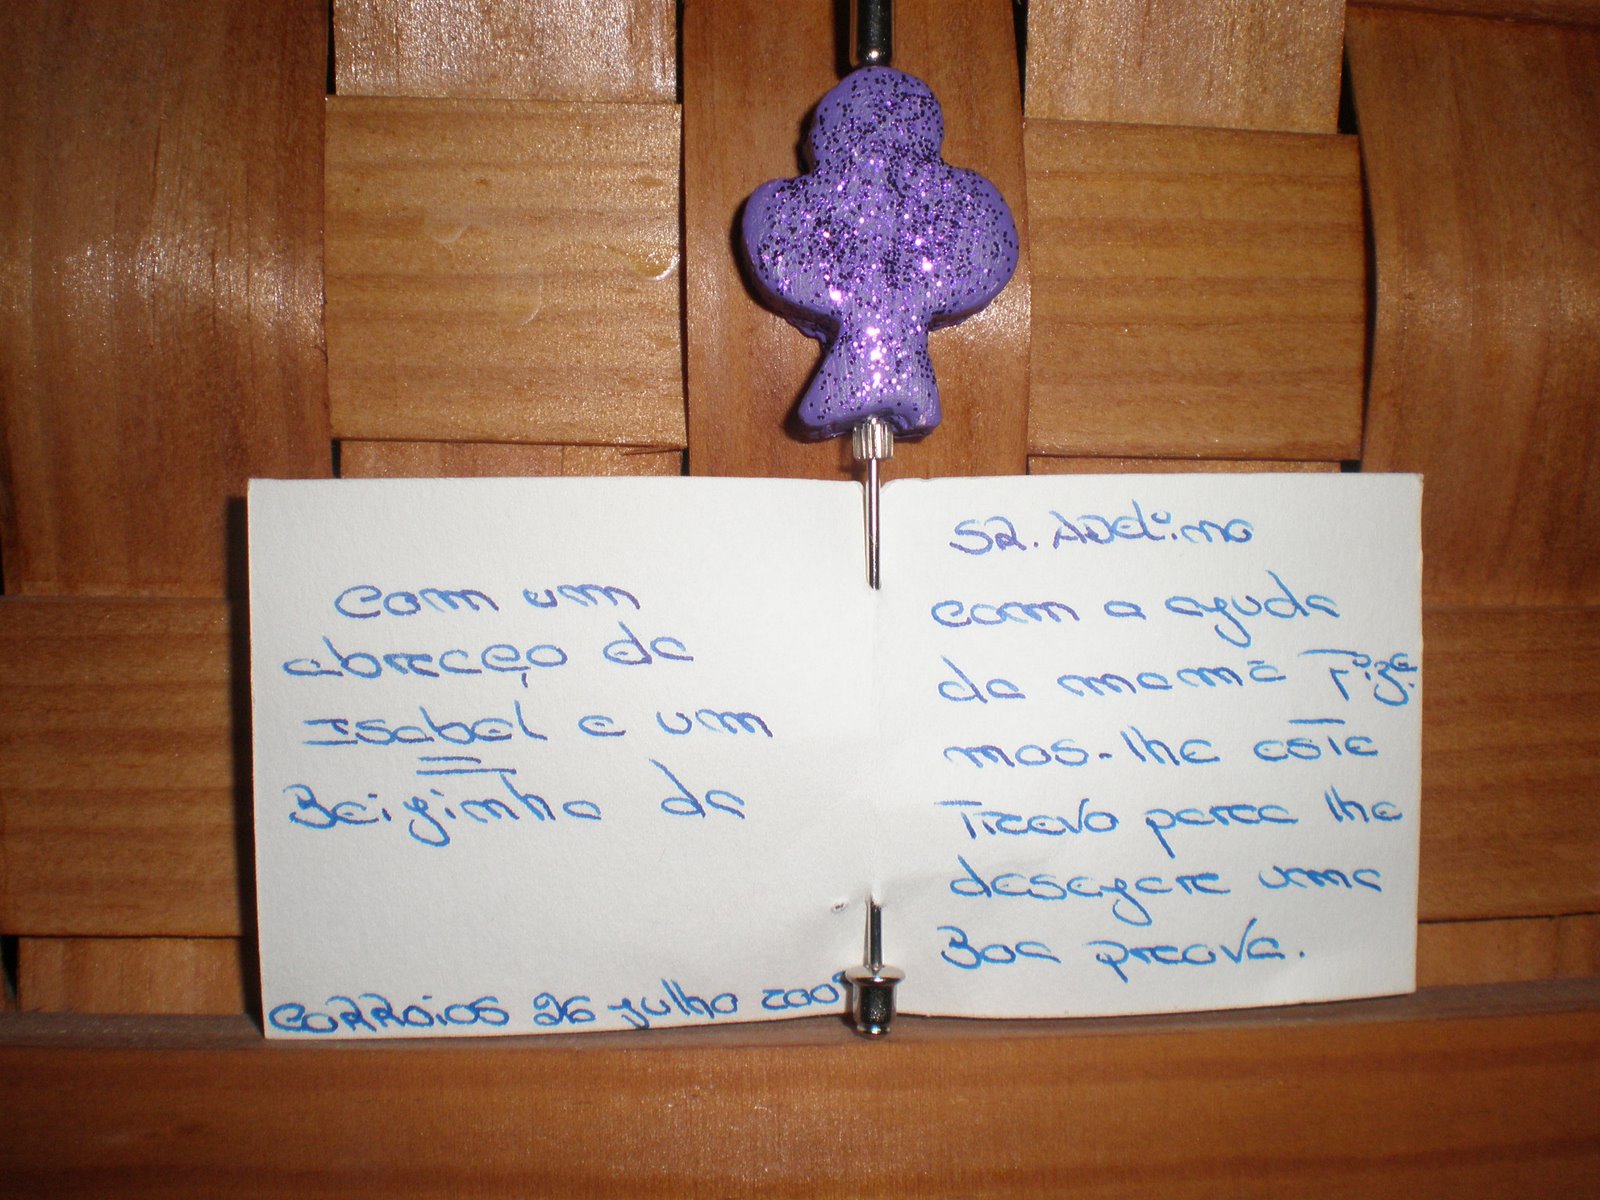 Com um
abraço da
Isabel e um
Beijinho da
CORROIOS 26 julho 2009
SR. Adelino
com a ajuda
da mamã Fize-
mos-lhe este
Travo para lhe
desejar uma
Boa prova.